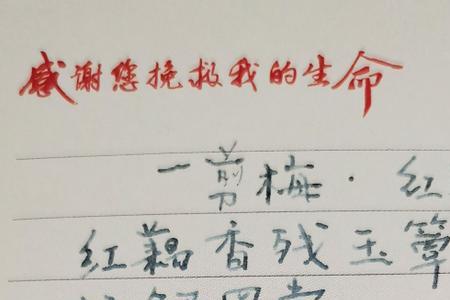 感谢您挽救我的生命
一剪梅·红
红藕香残玉簟